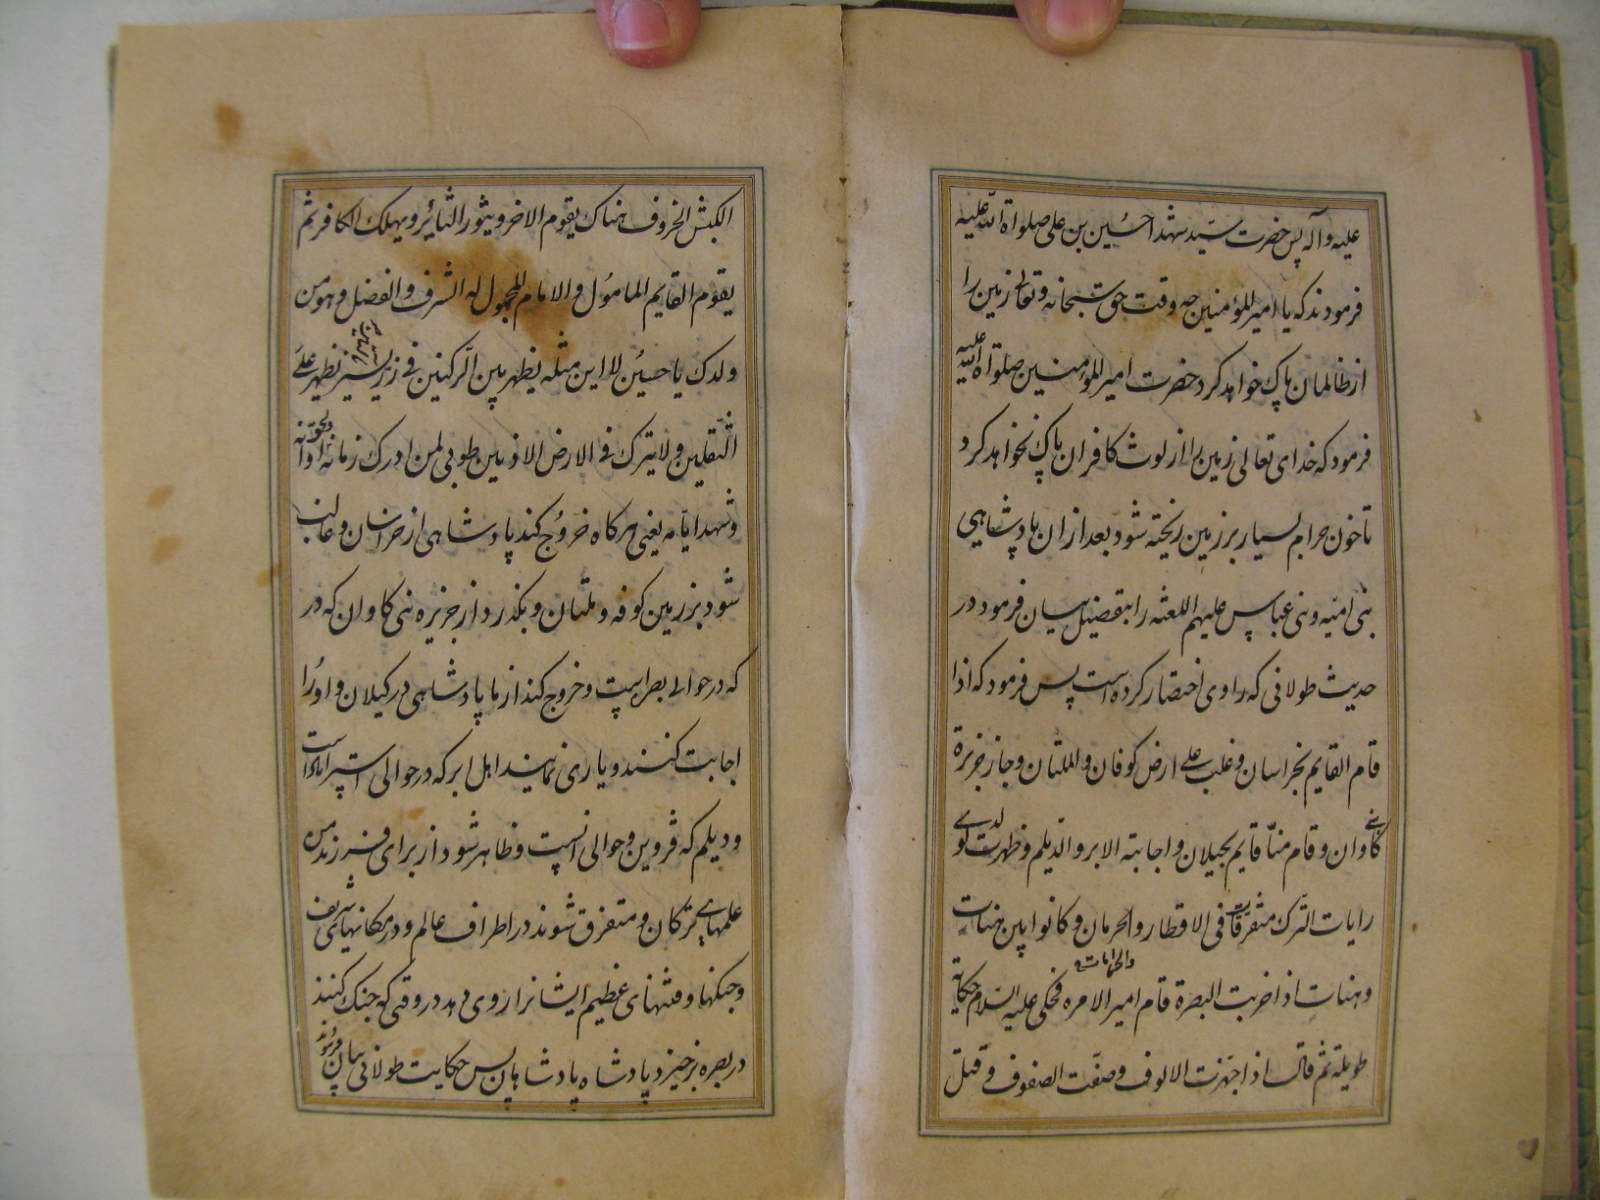 علیه و آله پس حضرت سید شهدا حسین بن علی صلواة الله علیه
فرمودند که یا امیر المؤمنین چه وقت حق سبحانه وتعالی زمین را
از ظالمان پاک خواهد کرد حضرت امیر المؤمنین صلواة الله علیه
فرمود که خدای تعالی زمین را از لوث کافران پاک نخواهد کرد
تا خون حرام بسیار بر زمین ریخته شود بعد از ان پادشاهی
بنی امیه و بنی عباس علیهم اللعنه را بتفضیل بیان فرمود در
حدیث طولانی که راوی اختصار کرده است پس فرمود که اذا
قام القایم بخراسان و غلب علی ارض کوفان و الملتان و جاز جزیرة
بنی کاوان و قام منا قایم بجیلان و اجابته الابر و الدیلم و ظهرت لولدی
رایات الترک متفرقات فی الاقطار و الحرمات و کانوا بین هنات
وهنات اذا خربت البصرة قام امیر الامره فحکی علیه السلام حکایة
طویلة ثم قال اذا جهزت الالوف و صفت الصفوف و قتل
الکبش الخروف هناک یقوم الاخر ویثور الثائر ویهلک الکافر ثم
یقوم القایم المامول والامام المجهول له الشرف والفضل وهو من
ولدک یا حسین لا ابن مثله یظهر بین الرکنین فی یظهر علی
الثقلین ولا یترک فی الارض الاذنین طوبی لمن ادرک زمانه ولحق اوانه
وشهد ایامه یعنی هرگاه خروج کند پادشاهی از خراسان و غالب
شود بر زمین کوفه و ملتان و بگذرد از جزیره بنی کاوان که در
که در حوالی بصره است و خروج کند از ما پادشاهی در کیلان و او را
اجابت کنند و یاری نمایند اهل ابر که در حوالی استراباد است
و دیلم که قزوین و حوالی انست و ظاهر شود از برای فرزند من
علمهای ترکان و متفرق شوند در اطراف عالم و در مکانهای شریف
و جنکها و فتنهای عظیم ایشانرا روی دهد در وقتی که جنک کنند
در بصره برخیزد پادشاه پادشاهان پس حکایت طولانی بیان فرمود